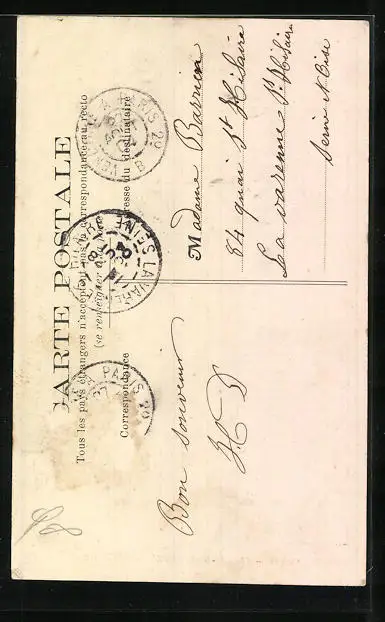 CARTE POSTALE
Tous les pays étrangers n'acceptent pas la correspondance au recto
(se renseigner à la
Correspondance
Adresse du destinataire
Bon souvenir
Madame Barrien
84 quai St Hilaire
La Varenne St Hilaire
Seine et Oise
PARIS
LA VARENNE
SEINE
PARIS